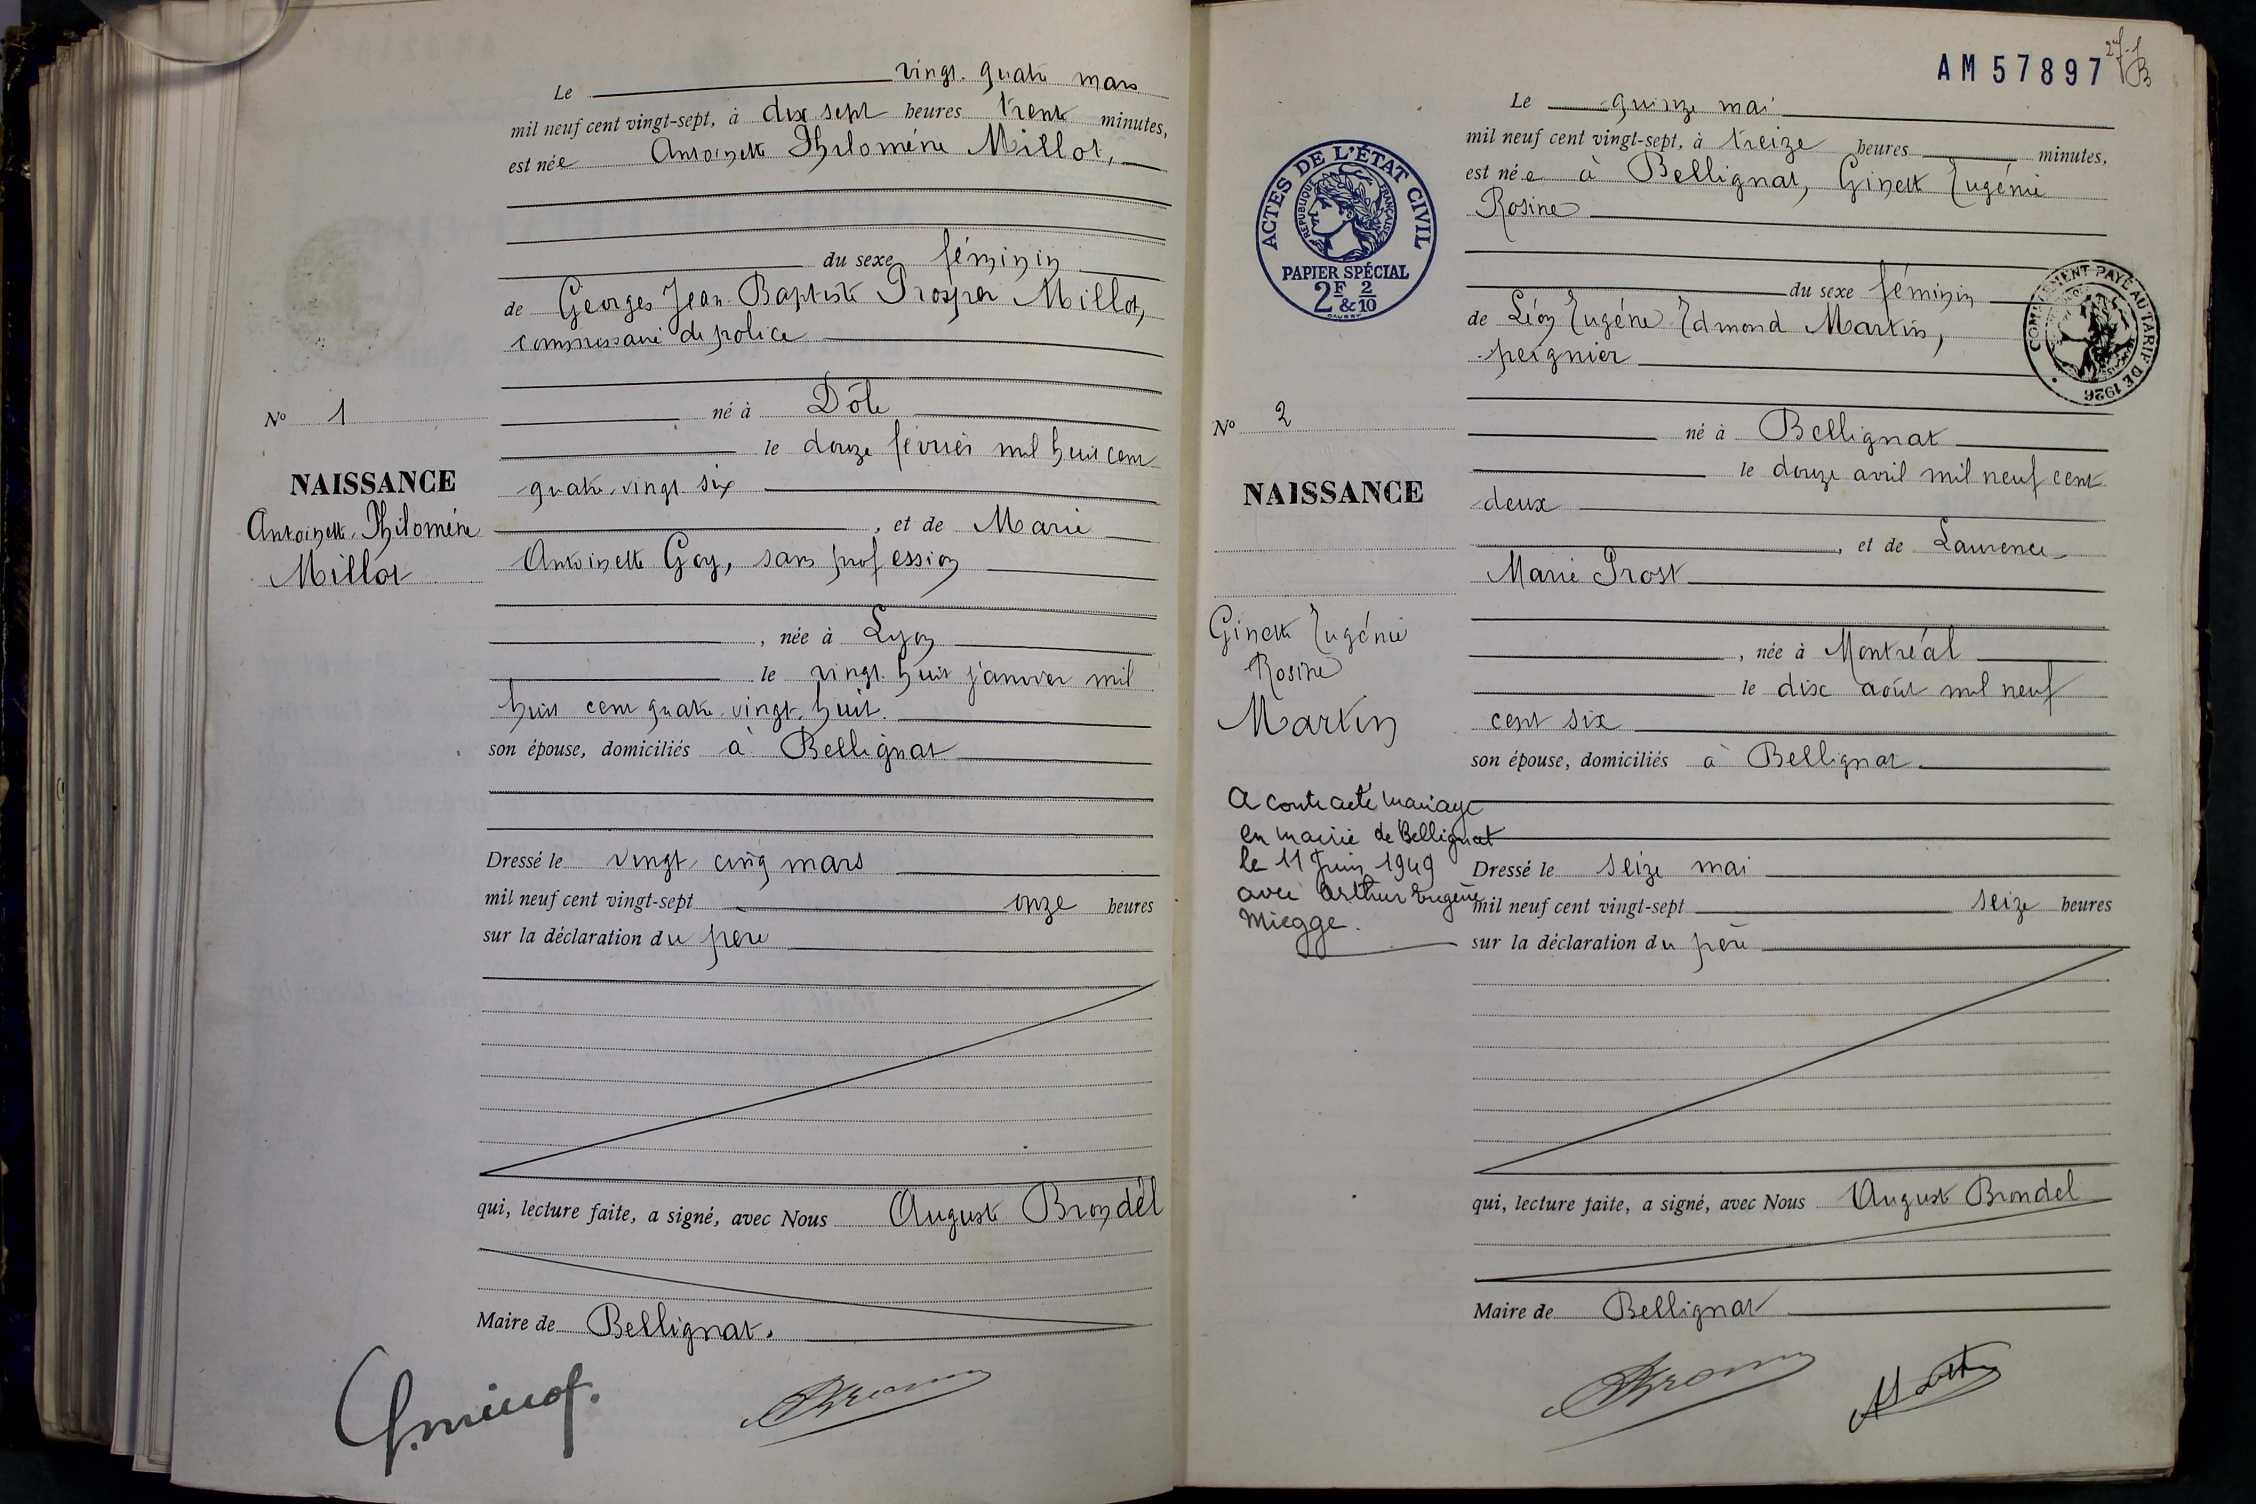 Le vingt. quatre mars
mil neuf cent vingt-sept, à dix sept heures trente minutes,
est née Antoinette Philomène Millot,
du sexe féminin
de Georges Jean-Baptiste Prosper Millot,
commissaire de police
né à Dôle
le douze février mil huit cent
quatre-vingt six
, et de Marie
Antoinette Goy, sans profession
, née à Lyon
le vingt huit janvier mil
huit cent quatre-vingt-huit.
son épouse, domiciliés à Bellignat
Dressé le vingt cinq mars
mil neuf cent vingt-sept onze heures
sur la déclaration du père
qui, lecture faite, a signé, avec Nous Auguste Brondel
Maire de Bellignat.
N° 1
NAISSANCE
Antoinette Philomène
Millot
AM 57897
Le quinze mai
mil neuf cent vingt-sept, à treize heures minutes,
est née à Bellignat, Ginette Eugénie
Rosine
du sexe féminin
de Léon Eugène Edmond Martin,
peignier
né à Bellignat
le douze avril mil neuf cent
deux
, et de Laurence
Marie Prost
, née à Montréal
le dix août mil neuf
cent six
son épouse, domiciliés à Bellignat.
Dressé le seize mai
mil neuf cent vingt-sept seize heures
sur la déclaration du père
qui, lecture faite, a signé, avec Nous Auguste Brondel
Maire de Bellignat
ACTES DE L'ÉTAT CIVIL
RÉPUBLIQUE FRANÇAISE
PAPIER SPÉCIAL
2F & 2/10
COMPLÉMENT PAYÉ AU TARIF DE 1926
N° 2
NAISSANCE
Ginette Eugénie
Rosine
Martin
A contracté mariage
en mairie de Bellignat
le 11 Juin 1949
avec Arthur Eugène
Miegge.